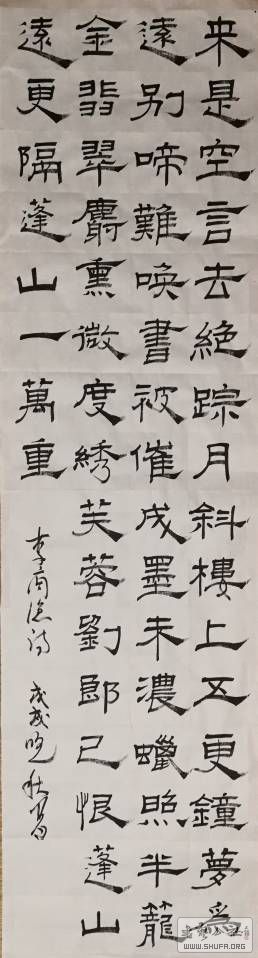 来是空言去絶踪月斜樓上五更鐘夢為
遠别啼難唤書被催成墨未濃蠟照半籠
金翡翠麝熏微度綉芙蓉劉郎已恨蓬山
遠更隔蓬山一萬重
李商隐诗 戊戌晚秋
WWW.SHUFA.ORG